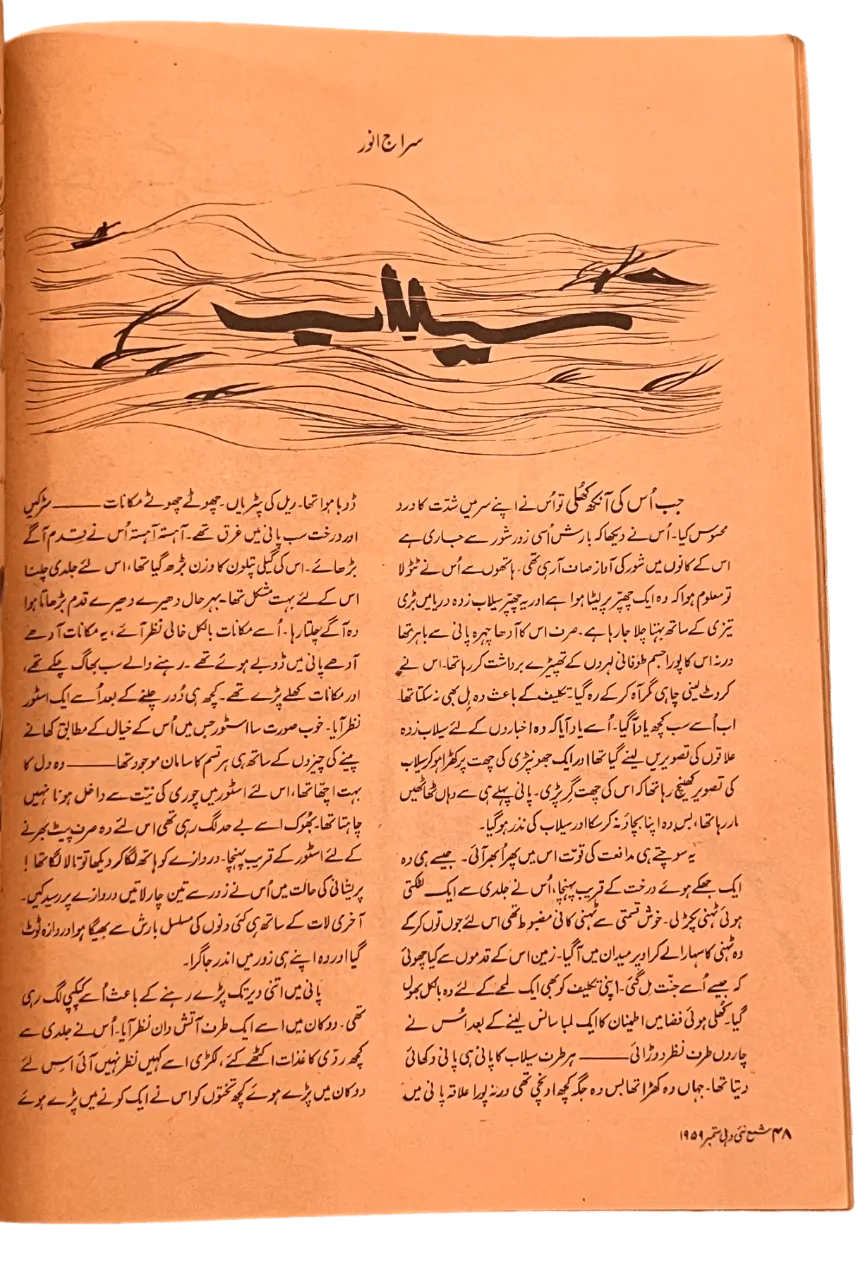 سراج انور
سیلاب
جب اُس کی آنکھ کھُلی تو اُس نے اپنے سر میں شدّت کا درد
محسوس کیا۔ اُس نے دیکھا کہ بارش اُسی زور شور سے جاری ہے
اس کے کانوں میں شور کی آواز صاف آ رہی تھی۔ ہاتھوں سے اُس نے ٹٹولا
تو معلوم ہوا کہ وہ ایک چھپّر پر لیٹا ہوا ہے اور یہ چھپّر سیلاب زدہ دریا میں بڑی
تیزی کے ساتھ بہتا چلا جا رہا ہے۔ صرف اس کا آدھا چہرہ پانی سے باہر تھا
ورنہ اس کا پورا جسم طوفانی لہروں کے تھپیڑے برداشت کر رہا تھا۔ اس نے
کروٹ لینی چاہی مگر آہ کر کے رہ گیا۔ تکلیف کے باعث وہ ہِل بھی نہ سکتا تھا۔
اب اُسے سب کچھ یاد آ گیا۔ اُسے یاد آیا کہ وہ اخباروں کے لئے سیلاب زدہ
علاقوں کی تصویریں لینے گیا تھا اور ایک جھونپڑی کی چھت پر کھڑا ہو کر سیلاب
کی تصویر کھینچ رہا تھا کہ اس کی چھت گر پڑی۔ پانی پہلے ہی سے وہاں ٹھاٹھیں
مار رہا تھا، بس وہ اپنا بچاؤ نہ کر سکا اور سیلاب کی نذر ہو گیا۔
یہ سوچتے ہی مدافعت کی قوت اس میں پھر اُبھر آئی۔ جیسے ہی وہ
ایک جھکے ہوئے درخت کے قریب پہنچا، اُس نے جلدی سے ایک لٹکتی
ہوئی ٹہنی پکڑ لی۔ خوش قسمتی سے ٹہنی کافی مضبوط تھی اس لئے جوں توں کر کے
وہ ٹہنی کا سہارا لے کر اوپر میدان میں آ گیا۔ زمین اس کے قدموں سے کیا چھوئی
کہ جیسے اُسے جنّت مل گئی۔ اپنی تکلیف کو بھی ایک لمحے کے لئے وہ بالکل بھول
گیا۔ کھُلی ہوئی فضا میں اطمینان کا ایک لمبا سانس لینے کے بعد اُس نے
چاروں طرف نظر دوڑائی ——— ہر طرف سیلاب کا پانی ہی پانی دکھائی
دیتا تھا۔ جہاں وہ کھڑا تھا بس وہ جگہ کچھ اونچی تھی ورنہ پورا علاقہ پانی میں
ڈوبا ہوا تھا۔ ریل کی پٹریاں۔ چھوٹے چھوٹے مکانات ——— سڑکیں
اور درخت سب پانی میں غرق تھے۔ آہستہ آہستہ اُس نے قدم آگے
بڑھائے۔ اس کی گیلی پتلون کا وزن بڑھ گیا تھا، اس لئے جلدی چلنا
اس کے لئے بہت مشکل تھا۔ بہر حال دھیرے دھیرے قدم بڑھاتا ہوا
وہ آگے چلتا رہا۔ اُسے مکانات بالکل خالی نظر آئے، یہ مکانات آدھے
آدھے پانی میں ڈوبے ہوئے تھے۔ رہنے والے سب بھاگ چکے تھے،
اور مکانات کھلے پڑے تھے۔ کچھ ہی دُور چلنے کے بعد اُسے ایک اسٹور
نظر آیا۔ خوب صورت سا اسٹور جس میں اُس کے خیال کے مطابق کھانے
پینے کی چیزوں کے ساتھ ہی ہر قسم کا سامان موجود تھا ——— وہ دل کا
بہت اچھا تھا، اس لئے اسٹور میں چوری کی نیّت سے داخل ہونا نہیں
چاہتا تھا۔ بھُوک اسے بے حد لگ رہی تھی اس لئے وہ صرف پیٹ بھرنے
کے لئے اسٹور کے قریب پہنچا۔ دروازے کو ہاتھ لگا کر دیکھا تو تالا لگا تھا!
پریشانی کی حالت میں اُس نے زور سے تین چار لاتیں دروازے پر رسید کیں۔
آخری لات کے ساتھ ہی کئی دنوں کی مسلسل بارش سے بھیگا ہوا دروازہ ٹوٹ
گیا اور وہ اپنے ہی زور میں اندر جا گرا۔
پانی میں اتنی دیر تک پڑے رہنے کے باعث اُسے کپکپی لگ رہی
تھی۔ دوکان میں اسے ایک طرف آتش دان نظر آیا۔ اُس نے جلدی سے
کچھ ردّی کاغذات اکٹھے کئے، لکڑی اسے کہیں نظر نہیں آئی اس لئے
دوکان میں پڑے ہوئے کچھ تختوں کو اس نے ایک کونے میں پڑے ہوئے
۴۸ شمع نئی دہلی ستمبر ۱۹۵۹